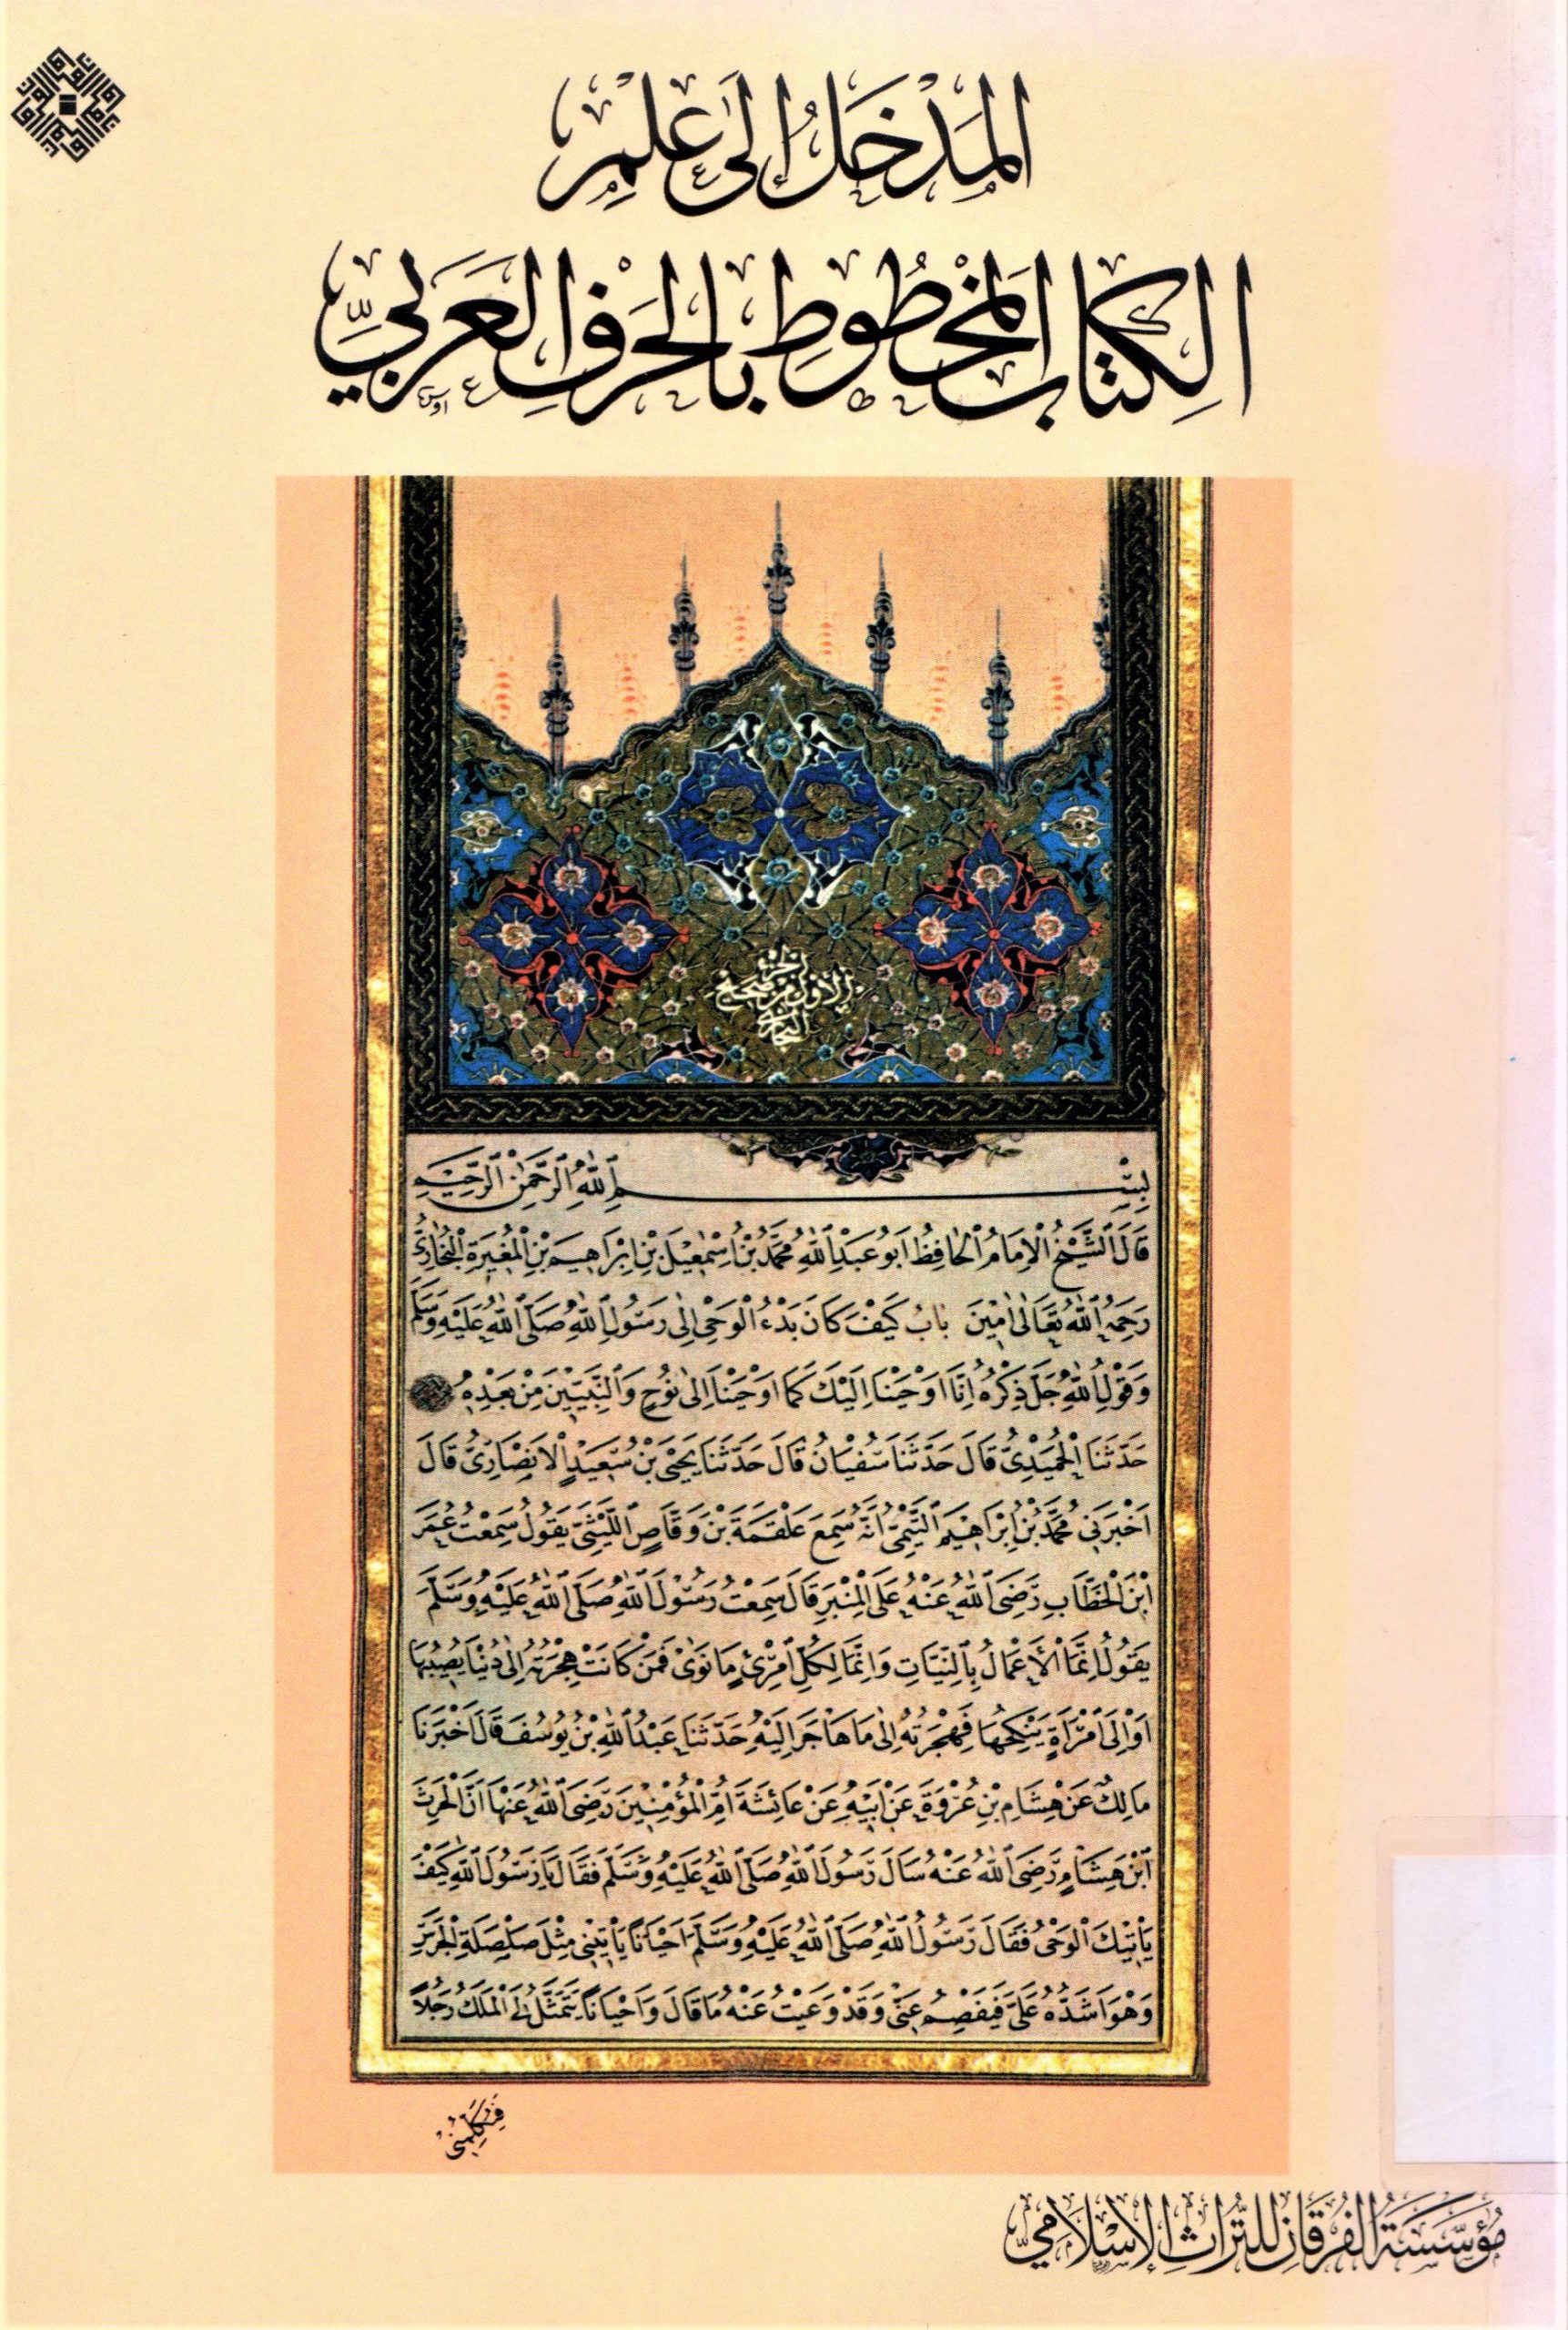 المَدْخَلُ إِلَى عِلْمِ
الكِتَابِ المَخْطُوطِ بِالحَرْفِ العَرَبِيِّ
الجزء
الاول من صحيح
البخاري
بِسْمِ اللَّهِ الرَّحْمٰنِ الرَّحِيمِ
قَالَ الشَّيْخُ الْاِمَامُ الْحَافِظُ اَبُو عَبْدِ اللّٰهِ مُحَمَّدُ بْنُ اِسْمٰعِيلَ بْنِ اِبْرَاهِيمَ بْنِ الْمُغِيرَةِ الْبُخَارِىُّ
رَحِمَهُ اللّٰهُ تَعَالٰى اٰمِينَ بَابُ كَيْفَ كَانَ بَدْءُ الْوَحْىِ اِلٰى رَسُولِ اللّٰهِ صَلَّى اللّٰهُ عَلَيْهِ وَسَلَّمَ
وَقَوْلِ اللّٰهِ جَلَّ ذِكْرُهُ اِنَّا اَوْحَيْنَا اِلَيْكَ كَمَا اَوْحَيْنَا اِلٰى نُوحٍ وَالنَّبِيّٖينَ مِنْ بَعْدِهِ
حَدَّثَنَا الْحُمَيْدِىُّ قَالَ حَدَّثَنَا سُفْيَانُ قَالَ حَدَّثَنَا يَحْيَى بْنُ سَعِيدٍ الْاَنْصَارِىُّ قَالَ
اَخْبَرَنِى مُحَمَّدُ بْنُ اِبْرَاهِيمَ التَّيْمِىُّ اَنَّهُ سَمِعَ عَلْقَمَةَ بْنَ وَقَّاصٍ اللَّيْثِىَّ يَقُولُ سَمِعْتُ عُمَرَ
ابْنَ الْخَطَّابِ رَضِىَ اللّٰهُ عَنْهُ عَلَى الْمِنْبَرِ قَالَ سَمِعْتُ رَسُولَ اللّٰهِ صَلَّى اللّٰهُ عَلَيْهِ وَسَلَّمَ
يَقُولُ اِنَّمَا الْاَعْمَالُ بِالنِّيَّاتِ وَاِنَّمَا لِكُلِّ امْرِئٍ مَا نَوٰى فَمَنْ كَانَتْ هِجْرَتُهُ اِلٰى دُنْيَا يُصِيبُهَا
اَوْ اِلَى امْرَاَةٍ يَنْكِحُهَا فَهِجْرَتُهُ اِلٰى مَا هَاجَرَ اِلَيْهِ حَدَّثَنَا عَبْدُ اللّٰهِ بْنُ يُوسُفَ قَالَ اَخْبَرَنَا
مَالِكٌ عَنْ هِشَامِ بْنِ عُرْوَةَ عَنْ اَبِيهِ عَنْ عَائِشَةَ اُمِّ الْمُؤْمِنِينَ رَضِىَ اللّٰهُ عَنْهَا اَنَّ الْحٰرِثَ
ابْنَ هِشَامٍ رَضِىَ اللّٰهُ عَنْهُ سَاَلَ رَسُولَ اللّٰهِ صَلَّى اللّٰهُ عَلَيْهِ وَسَلَّمَ فَقَالَ يَا رَسُولَ اللّٰهِ كَيْفَ
يَاْتِيكَ الْوَحْىُ فَقَالَ رَسُولُ اللّٰهِ صَلَّى اللّٰهُ عَلَيْهِ وَسَلَّمَ اَحْيَانًا يَاْتِينِى مِثْلَ صَلْصَلَةِ الْجَرَسِ
وَهُوَ اَشَدُّهُ عَلَىَّ فَيَفْصِمُ عَنِّى وَقَدْ وَعَيْتُ عَنْهُ مَا قَالَ وَاَحْيَانًا يَتَمَثَّلُ لِىَ الْمَلَكُ رَجُلاً
فَيُكَلِّمُنِى
مُؤَسَّسَةُ الفُرْقَانِ لِلتُّرَاثِ الإِسْلَامِيِّ